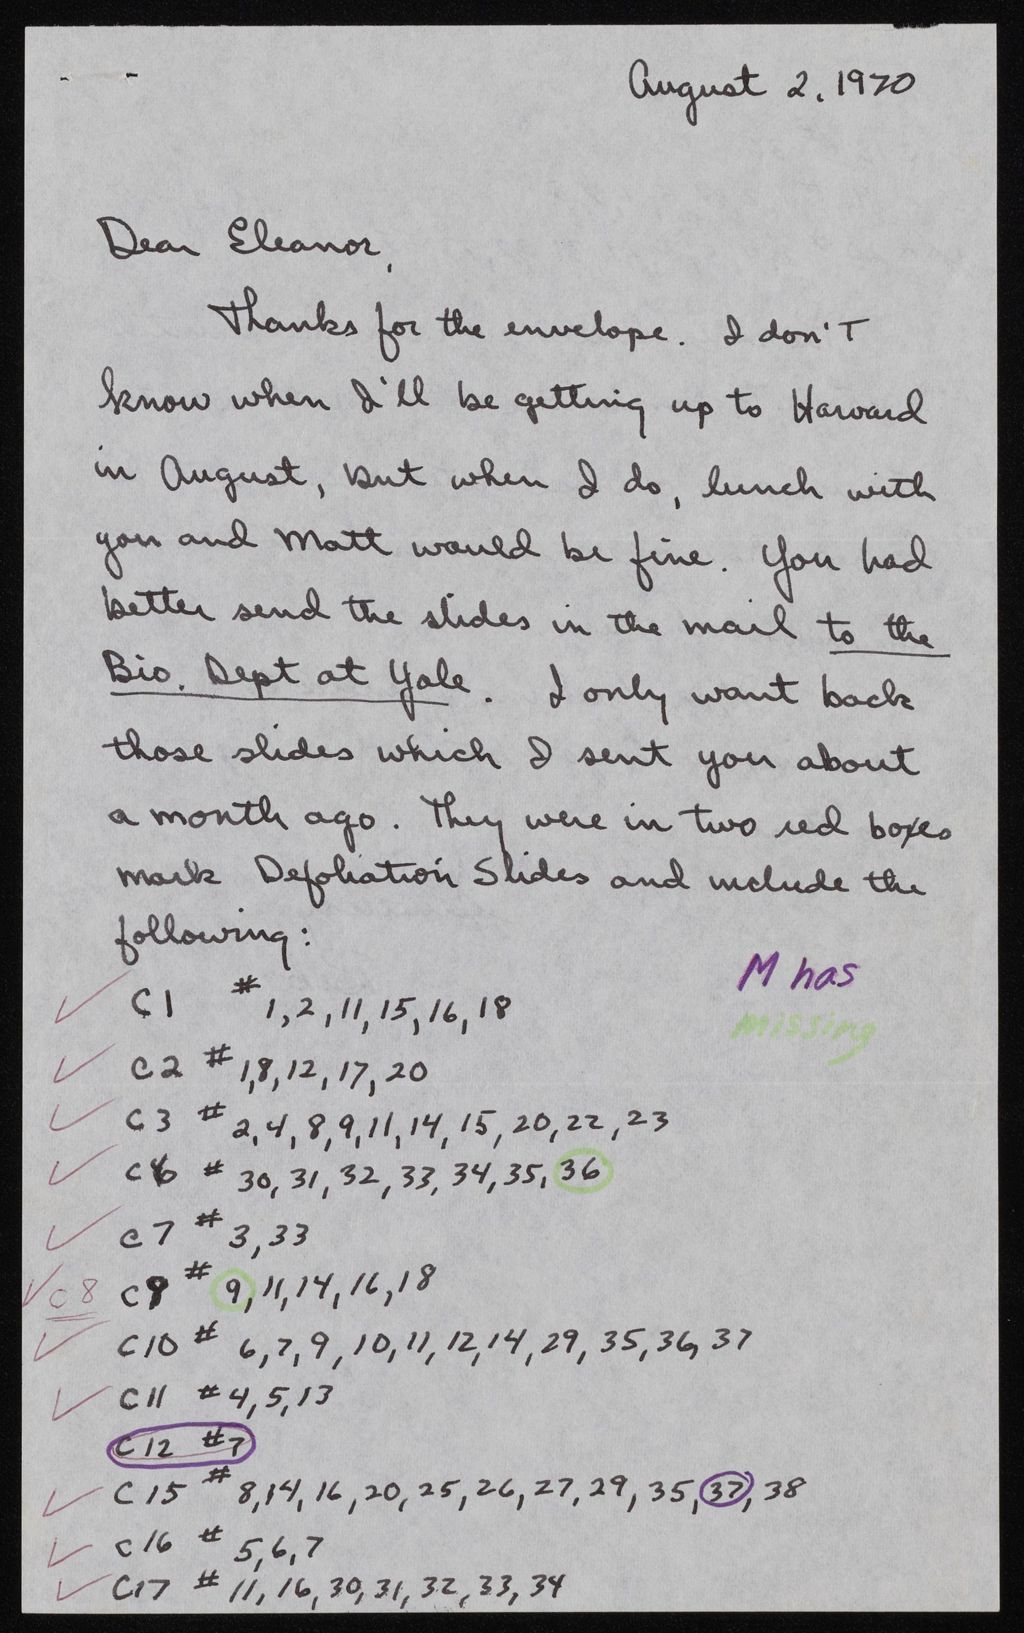 August 2, 1970
Dear Eleanor,
Thanks for the envelope. I don't
know when I'll be getting up to Harvard
in August, but when I do, lunch with
you and Matt would be fine. You had
better send the slides in the mail to the
Bio. Dept at Yale. I only want back
those slides which I sent you about
a month ago. They were in two red boxes
mark Defoliation Slides and include the
following:
M has
missing
C1 # 1, 2, 11, 15, 16, 18
C2 # 1, 8, 12, 17, 20
C3 # 2, 4, 8, 9, 11, 14, 15, 20, 22, 23
C6 # 30, 31, 32, 33, 34, 35, 36
C7 # 3, 33
C8 C8 # 9, 11, 14, 16, 18
C10 # 6, 7, 9, 10, 11, 12, 14, 29, 35, 36, 37
C11 # 4, 5, 13
C12 #7
C15 # 8, 14, 16, 20, 25, 26, 27, 29, 35, 37, 38
C16 # 5, 6, 7
C17 # 11, 16, 30, 31, 32, 33, 34